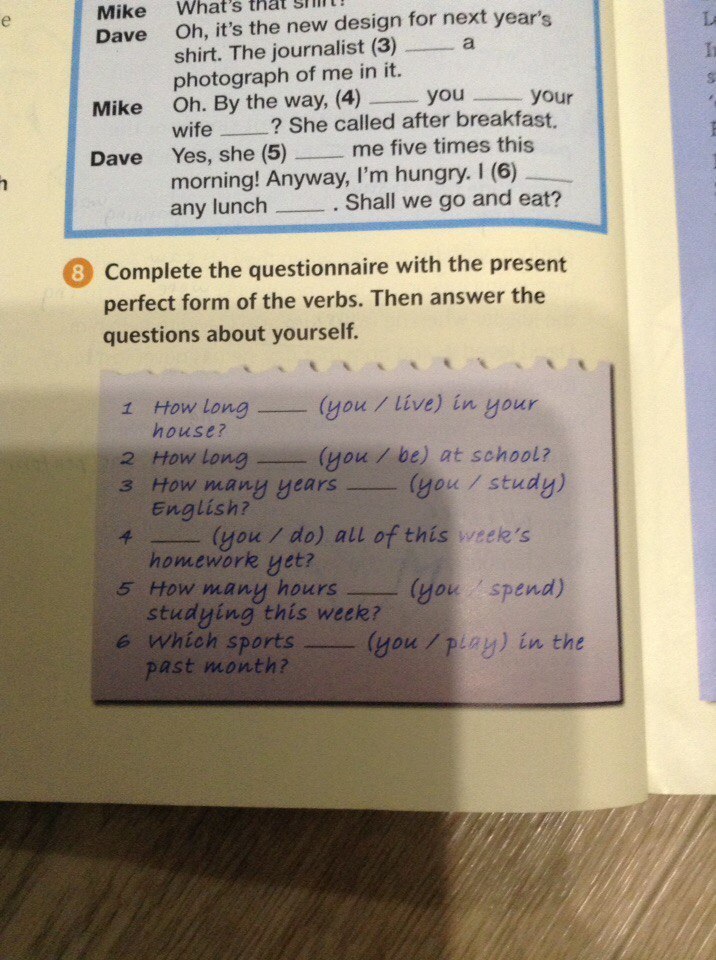 Mike What's that shirt?
Dave Oh, it's the new design for next year's
shirt. The journalist (3) ____ a
photograph of me in it.
Mike Oh. By the way, (4) ____ you ____ your
wife ____? She called after breakfast.
Dave Yes, she (5) ____ me five times this
morning! Anyway, I'm hungry. I (6) ____
any lunch ____. Shall we go and eat?
8 Complete the questionnaire with the present
perfect form of the verbs. Then answer the
questions about yourself.
1 How long ____ (you / live) in your
house?
2 How long ____ (you / be) at school?
3 How many years ____ (you / study)
English?
4 ____ (you / do) all of this week's
homework yet?
5 How many hours ____ (you / spend)
studying this week?
6 Which sports ____ (you / play) in the
past month?